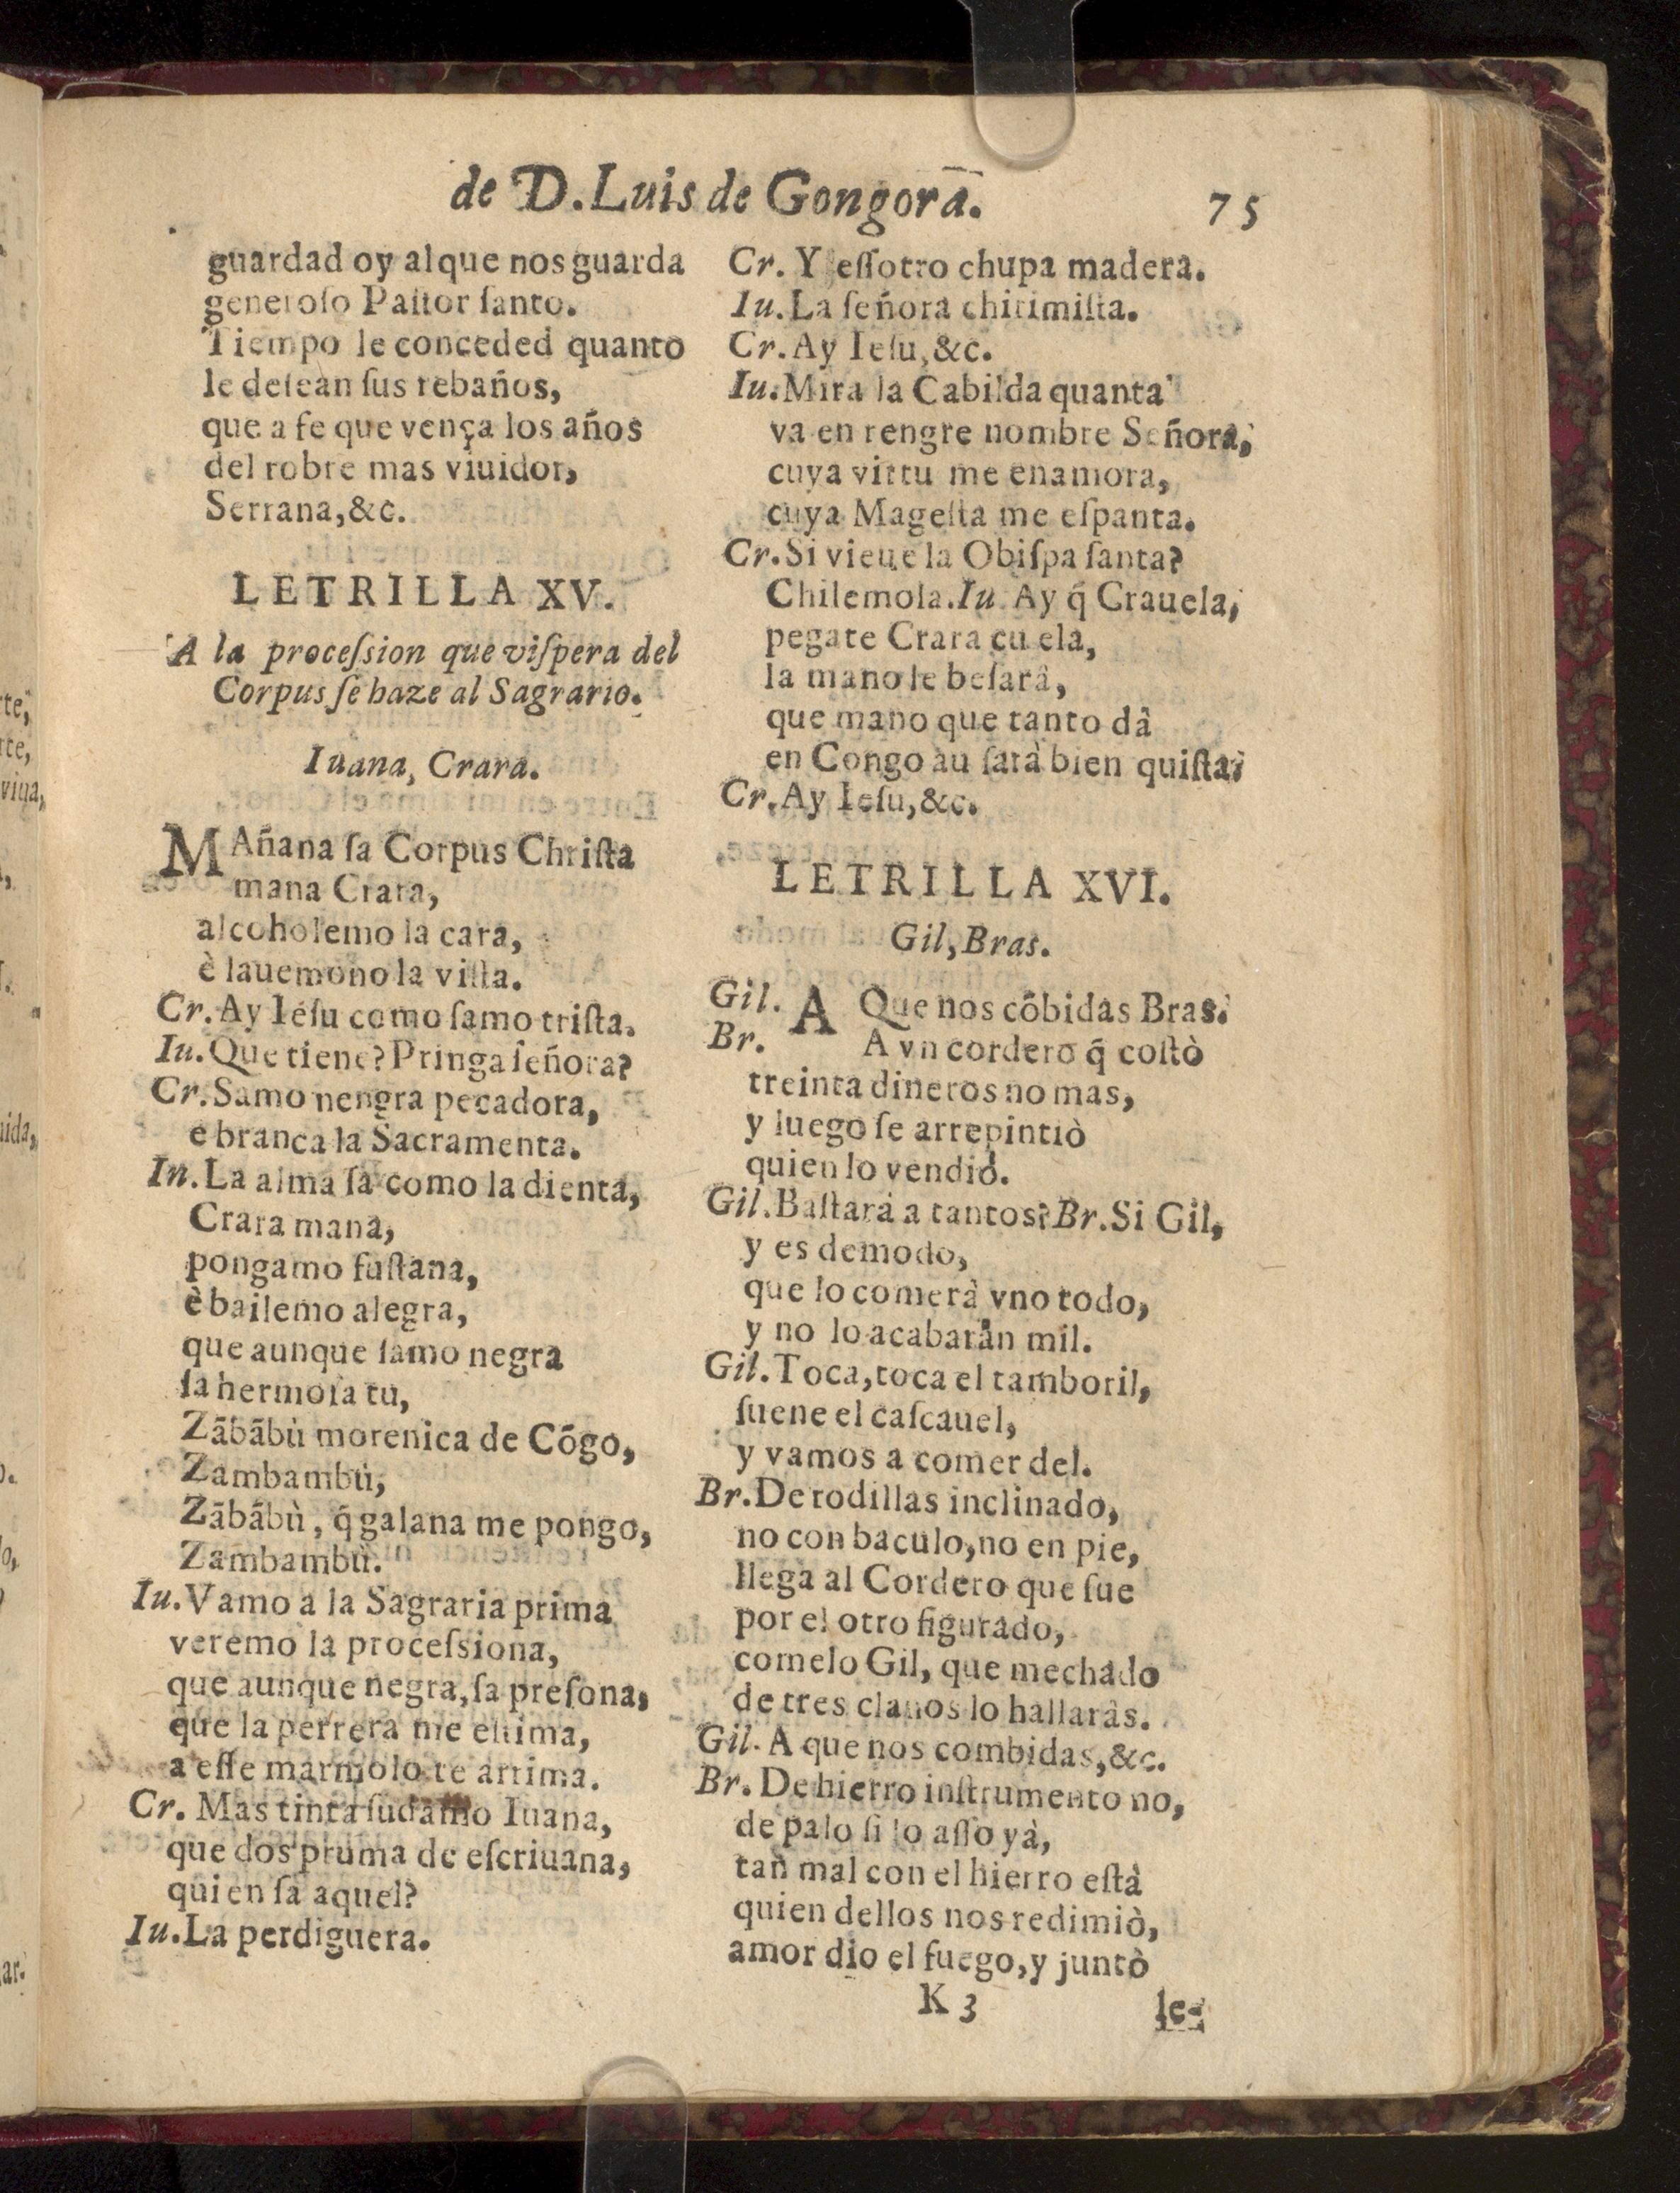 de D. Luis de Gongora.
75
guardad oy al que nos guarda
generoſo Paſtor ſanto.
Tiempo le conceded quanto
le deſean ſus rebaños,
que a fe que vença los años
del robre mas viuidor,
Serrana, &c.
LETRILLA XV.
A la proceſsion que viſpera del
Corpus ſe haze al Sagrario.
Iuana, Crara.
MAñana ſa Corpus Chriſta
mana Crara,
alcoholemo la cara,
è lauemono la viſta.
Cr. Ay Ieſu como ſamo triſta.
Iu. Que tiene? Pringa ſeñora?
Cr. Samo nengra pecadora,
e branca la Sacramenta.
In. La alma ſa como la dienta,
Crara mana,
pongamo fuſtana,
è bailemo alegra,
que aunque ſamo negra
ſa hermoſa tu,
Zãbãbù morenica de Cõgo,
Zambambù,
Zãbãbù, q̃ galana me pongo,
Zambambù.
Iu. Vamo a la Sagraria prima
veremo la proceſsiona,
que aunque negra, ſa preſona,
que la perrera me eſtima,
a eſſe marmolo te arrima.
Cr. Mas tinta ſudamo Iuana,
que dos pruma de eſcriuana,
quien ſa aquel?
Iu. La perdiguera.
Cr. Y eſſotro chupa madera.
Iu. La ſeñora chirimiſta.
Cr. Ay Ieſu, &c.
Iu. Mira la Cabilda quanta
va en rengre nombre Señora,
cuya virtu me enamora,
cuya Mageſta me eſpanta.
Cr. Si vieue la Obiſpa ſanta?
Chilemola. Iu. Ay q̃ Crauela,
pegate Crara cu ela,
la mano le beſarà,
que mano que tanto dà
en Congo au ſarà bien quiſta.
Cr. Ay Ieſu, &c.
LETRILLA XVI.
Gil, Bras.
Gil. A Que nos cõbidas Bras.
Br. A vn cordero q̃ coſtò
treinta dineros no mas,
y luego ſe arrepintiò
quien lo vendiò.
Gil. Baſtarà a tantos? Br. Si Gil,
y es de modo,
que lo comerà vno todo,
y no lo acabaràn mil.
Gil. Toca, toca el tamboril,
ſuene el caſcauel,
y vamos a comer del.
Br. De rodillas inclinado,
no con baculo, no en pie,
llega al Cordero que fue
por el otro figurado,
comelo Gil, que mechado
de tres clauos lo hallaràs.
Gil. A que nos combidas, &c.
Br. De hierro inſtrumento no,
de palo ſi lo aſſo yà,
tan mal con el hierro eſtà
quien dellos nos redimiò,
amor dio el fuego, y juntò
K 3
le-